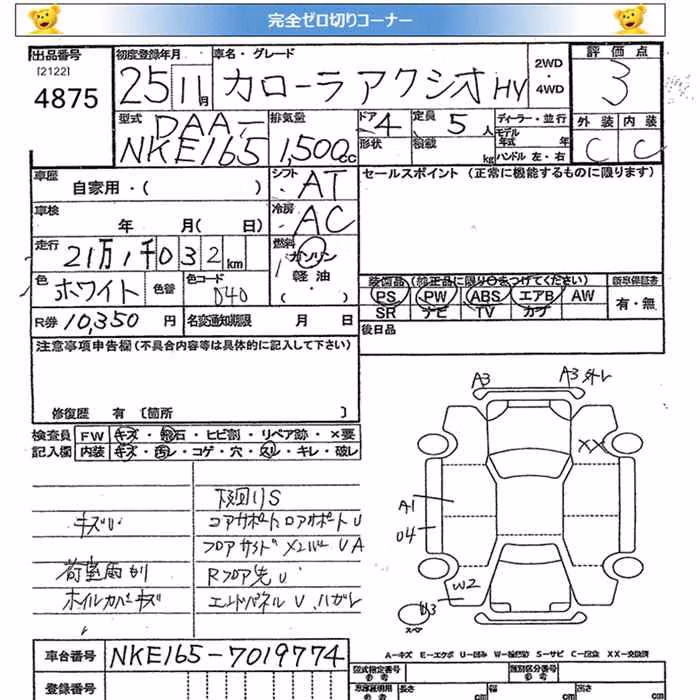 完全ゼロ切りコーナー
出品番号
[2122]
4875
初度登録年月
25 11月
車名・グレード
カローラアクシオ HV
2WD
・
4WD
評価点
3
外装 内装
C C
型式
DAA-
NKE165
排気量
1,500cc
ドア 4
定員 5人
形状
積載 kg
ディーラー・並行
モデル
年式 年
ハンドル 左・右
車歴
自家用・( )
シフト
AT
セールスポイント (正常に機能するものに限ります)
車検
年 月( 日)
冷房
AC
走行
21万1千032km
燃料
ガソリン
軽油
・( )
色
ホワイト
色替
色コード
040
装備品 (純正品に限り○をつけてください)
新車保証書
PS PW ABS エアB AW
SR ナビ TV カワ
有・無
R券 10,350円
名変通知期限 月 日
後日品
注意事項申告欄(不具合内容等は具体的に記入して下さい)
修復歴 有 [箇所 ]
検査員
記入欄
FW キズ・飛石・ヒビ割・リペア跡・×要
内装 キズ・汚レ・コゲ・穴・スレ・キレ・破レ
下回りS
キズU
コアサポートロアサポートU
フロアサイドメンバーUA
荷室内張リ
Rフロア先U
ホイルカバーキズ
エンドパネルU ハガレ
A3
A3 外レ
XX
A1
U4
W2
U3
スペア
A-キズ E-エクボ U-凹み W-補修跡 S-サビ C-腐食 XX-交換済
車台番号
NKE165-7019774
登録番号
型式指定番号
参考
類別区分番号
参考
長さ cm
幅 cm
高さ cm